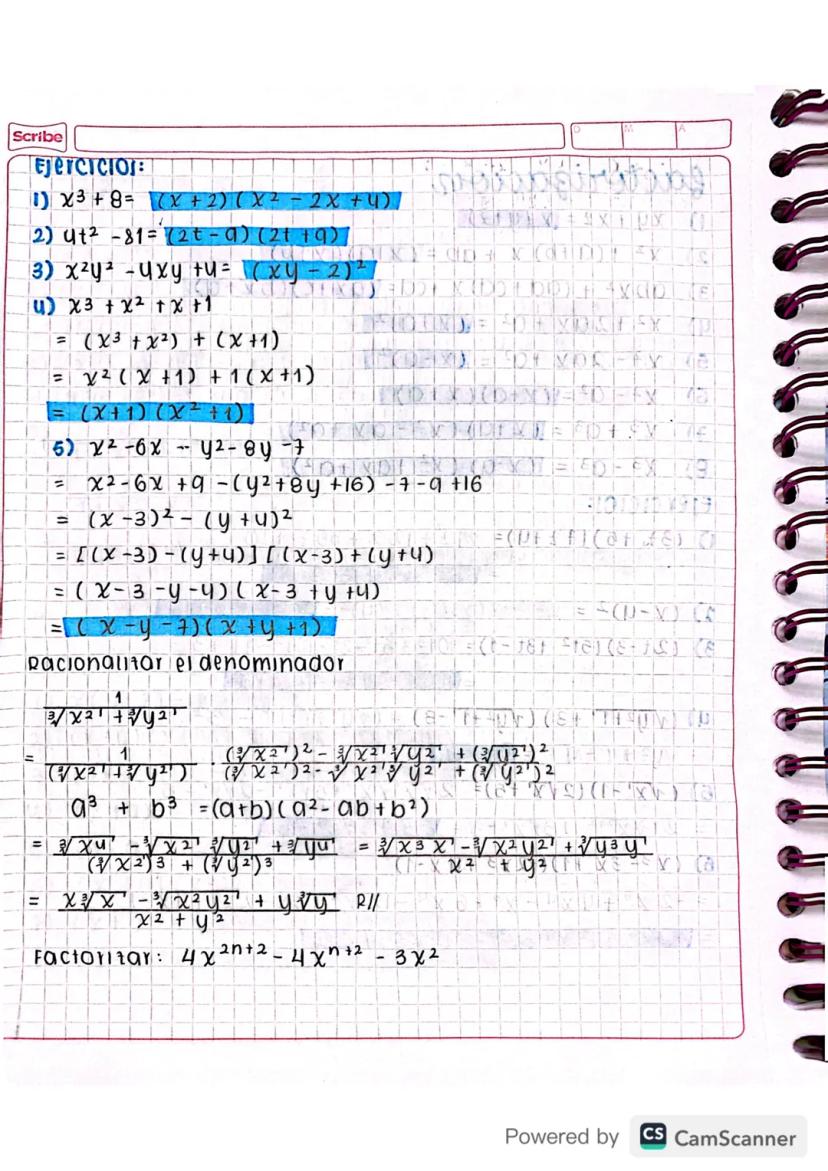 Scribe
D M A
Ejercicios:
1) x³ + 8 = (x + 2) (x² - 2x + 4)
2) 4t² - 81 = (2t - 9) (2t + 9)
3) x²y² - 4xy + 4 = (xy - 2)²
4) x³ + x² + x + 1
= (x³ + x²) + (x + 1)
= x² (x + 1) + 1 (x + 1)
= (x + 1) (x² + 1)
5) x² - 6x - y² - 8y - 7
= x² - 6x + 9 - (y² + 8y + 16) - 7 - 9 + 16
= (x - 3)² - (y + 4)²
= [(x - 3) - (y + 4)] [(x - 3) + (y + 4)
= (x - 3 - y - 4) (x - 3 + y + 4)
= (x - y - 7) (x + y + 1)
Racionalizar el denominador
1 / (∛x² + ∛y²)
= 1 / (∛x² + ∛y²) · ((∛x²)² - ∛x² ∛y² + (∛y²)²) / ((∛x²)² - ∛x² ∛y² + (∛y²)²)
a³ + b³ = (a + b) (a² - ab + b²)
= (∛x⁴ - ∛x² ∛y² + ∛y⁴) / ((∛x²)³ + (∛y²)³) = (∛x³x - ∛x²y² + ∛y³y) / (x² + y²)
= (x∛x - ∛x²y² + y∛y) / (x² + y²) R//
Factorizar: 4x²ⁿ⁺² - 4xⁿ⁺² - 3x²
Powered by CS CamScanner